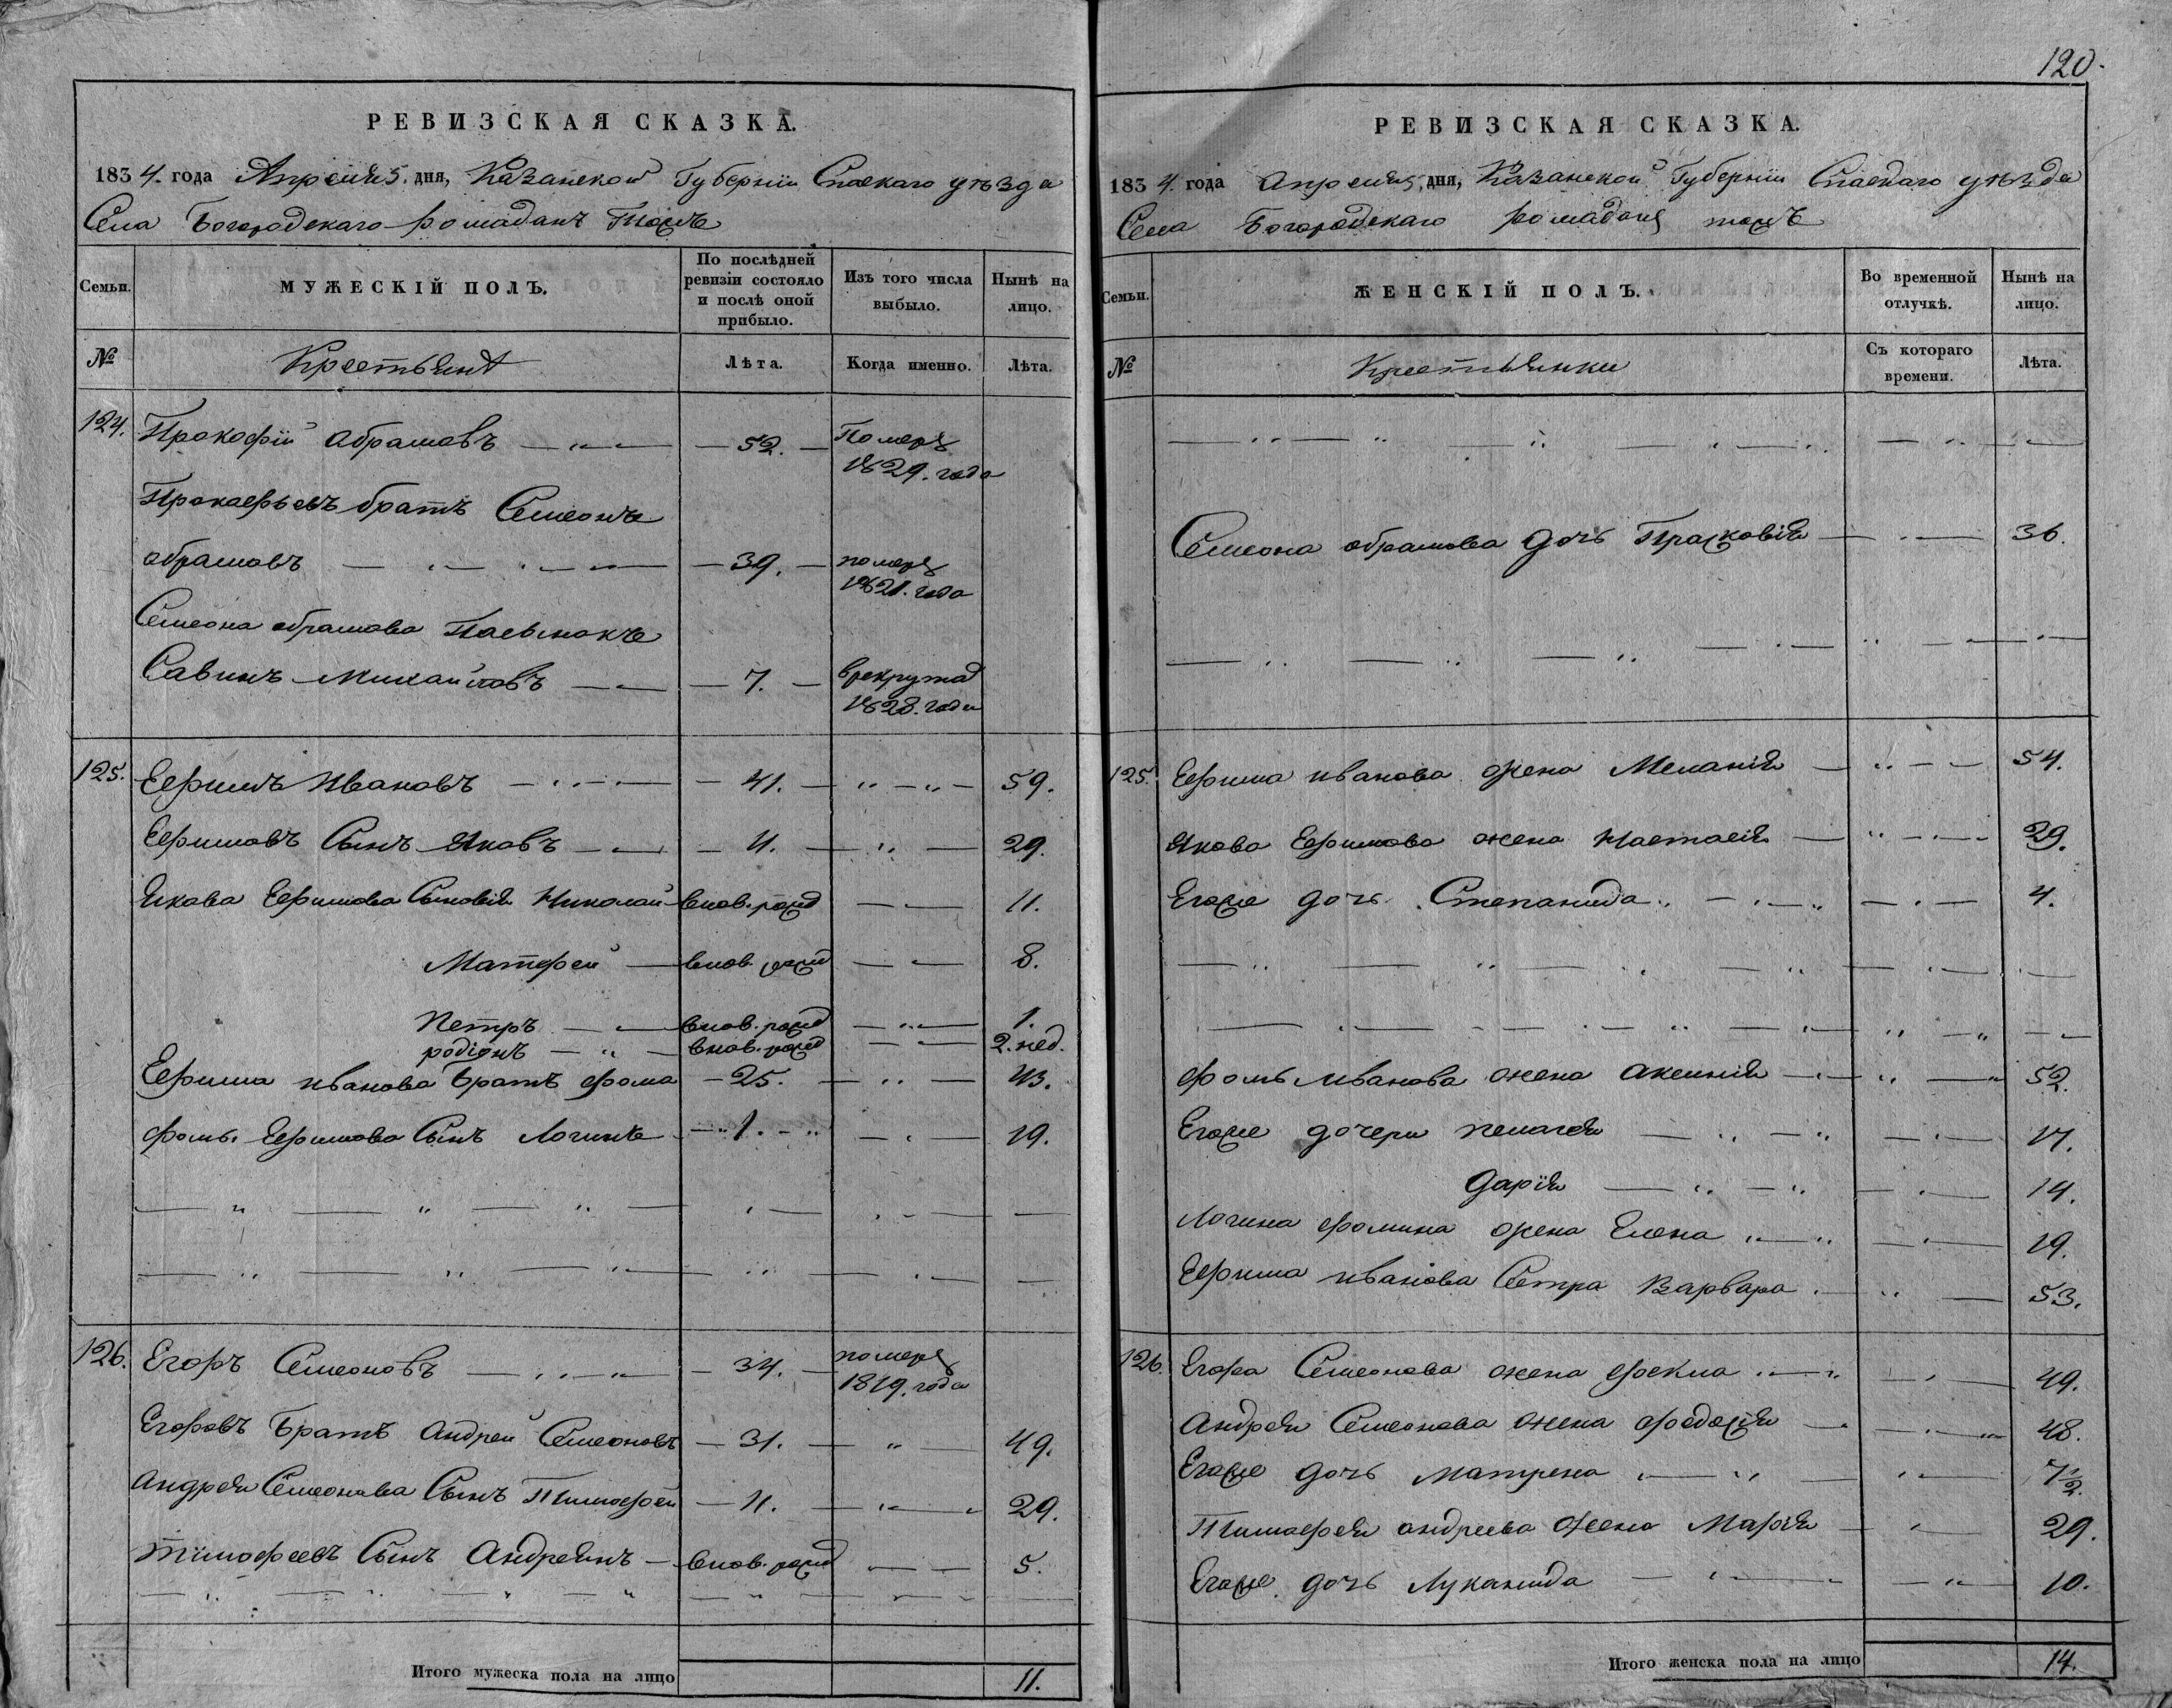 РЕВИЗСКАЯ СКАЗКА.
1834. года Апреля 5. дня, Казанской Губернии Спаскаго уѣзда
Села Богородскаго Ромаданъ тожъ
Семьи. МУЖЕСКІЙ ПОЛЪ. По послѣдней ревизіи состояло и послѣ оной прибыло. Изъ того числа выбыло. Нынѣ на лицо.
№ Крестьянѣ Лѣта. Когда именно. Лѣта.
124. Прокофій Абрамовъ 52. Померъ 1829. года
Прокофьевъ братъ Семеонъ
абрамовъ 39. померъ 1821. года
Семеона абрамова Пасынокъ
Савинъ Михайловъ 7. врекруты 1828. года
125. Ефимъ Ивановъ 41. 59.
Ефимовъ Сынъ Яковъ 11. 29.
Якова Ефимова Сыновія Николай внов. рожд 11.
Матфей внов. рожд 8.
Петръ внов. рожд 1.
родіонъ внов. рожд 2. нед.
Ефима иванова братъ фома 25. 43.
фомы Ефимова Сынъ Логинъ 1. 19.
126. Егоръ Семеоновъ 34. померъ 1819. года
Егоровъ Братъ Андрей Семеоновъ 31. 49.
Андрея Семеонова Сынъ Тимофей 11. 29.
Тимофеевъ Сынъ Андреянъ внов. рожд 5.
Итого мужеска пола на лицо 11.
120.
РЕВИЗСКАЯ СКАЗКА.
1834. года Апреля 5, дня, Казанской Губерніи Спаскаго уѣзда
Села Богородскаго ромаданъ тожъ
Семьи. ЖЕНСКІЙ ПОЛЪ. Во временной отлучкѣ. Нынѣ на лицо.
№ Крестьянки Съ котораго времени. Лѣта.
Семеона абрамова дочь Прасковія 36.
125. Ефима иванова жена Меланія 54.
Якова Ефимова жена Настасія 29.
Егоже дочь Степанида 4.
фомы Иванова жена Аксинія 52.
Егоже дочери пелагея 17.
Дарія 14.
Логина фомина жена Елена 19.
Ефима иванова Сестра Варвара 53.
126. Егора Семеонова жена фекла 49.
Андрея Семеонова жена федосія 48.
Егоже дочь матрена 7 1/2.
Тимофея андреева жена Марія 29.
Егоже дочь Луканида 10.
Итого женска пола на лицо 14.